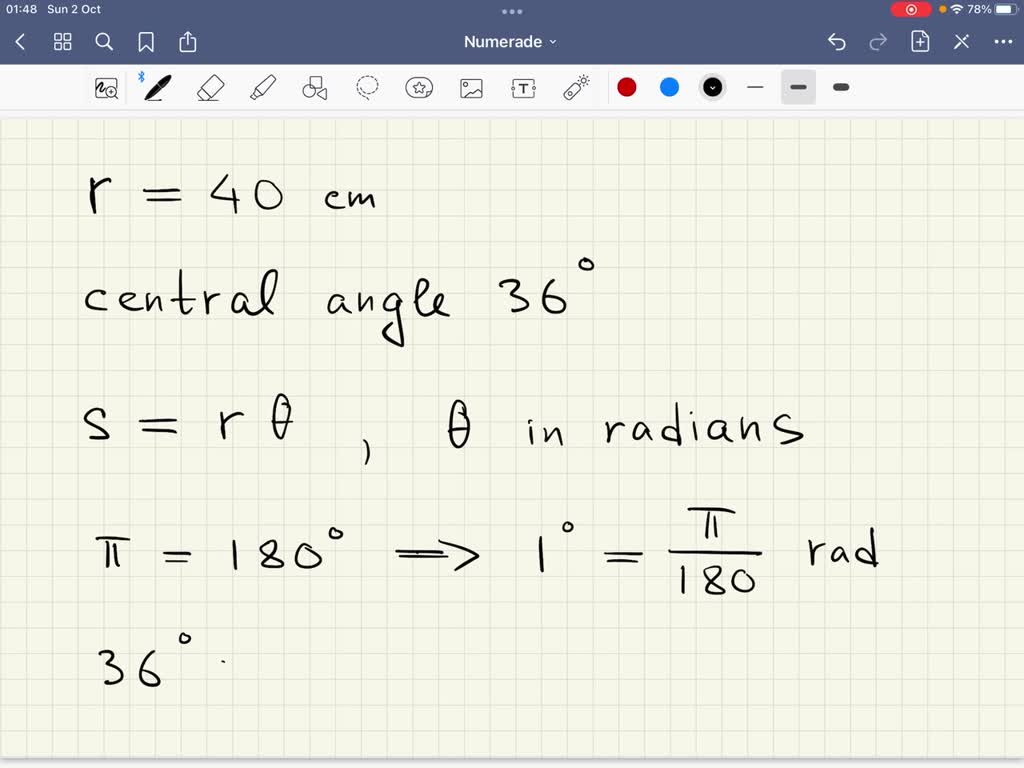 01:48 Sun 2 Oct 78%
Numerade
T
r = 40 cm
central angle 36°
s = r θ , θ in radians
π = 180° ⟹ 1° = π/180 rad
36°